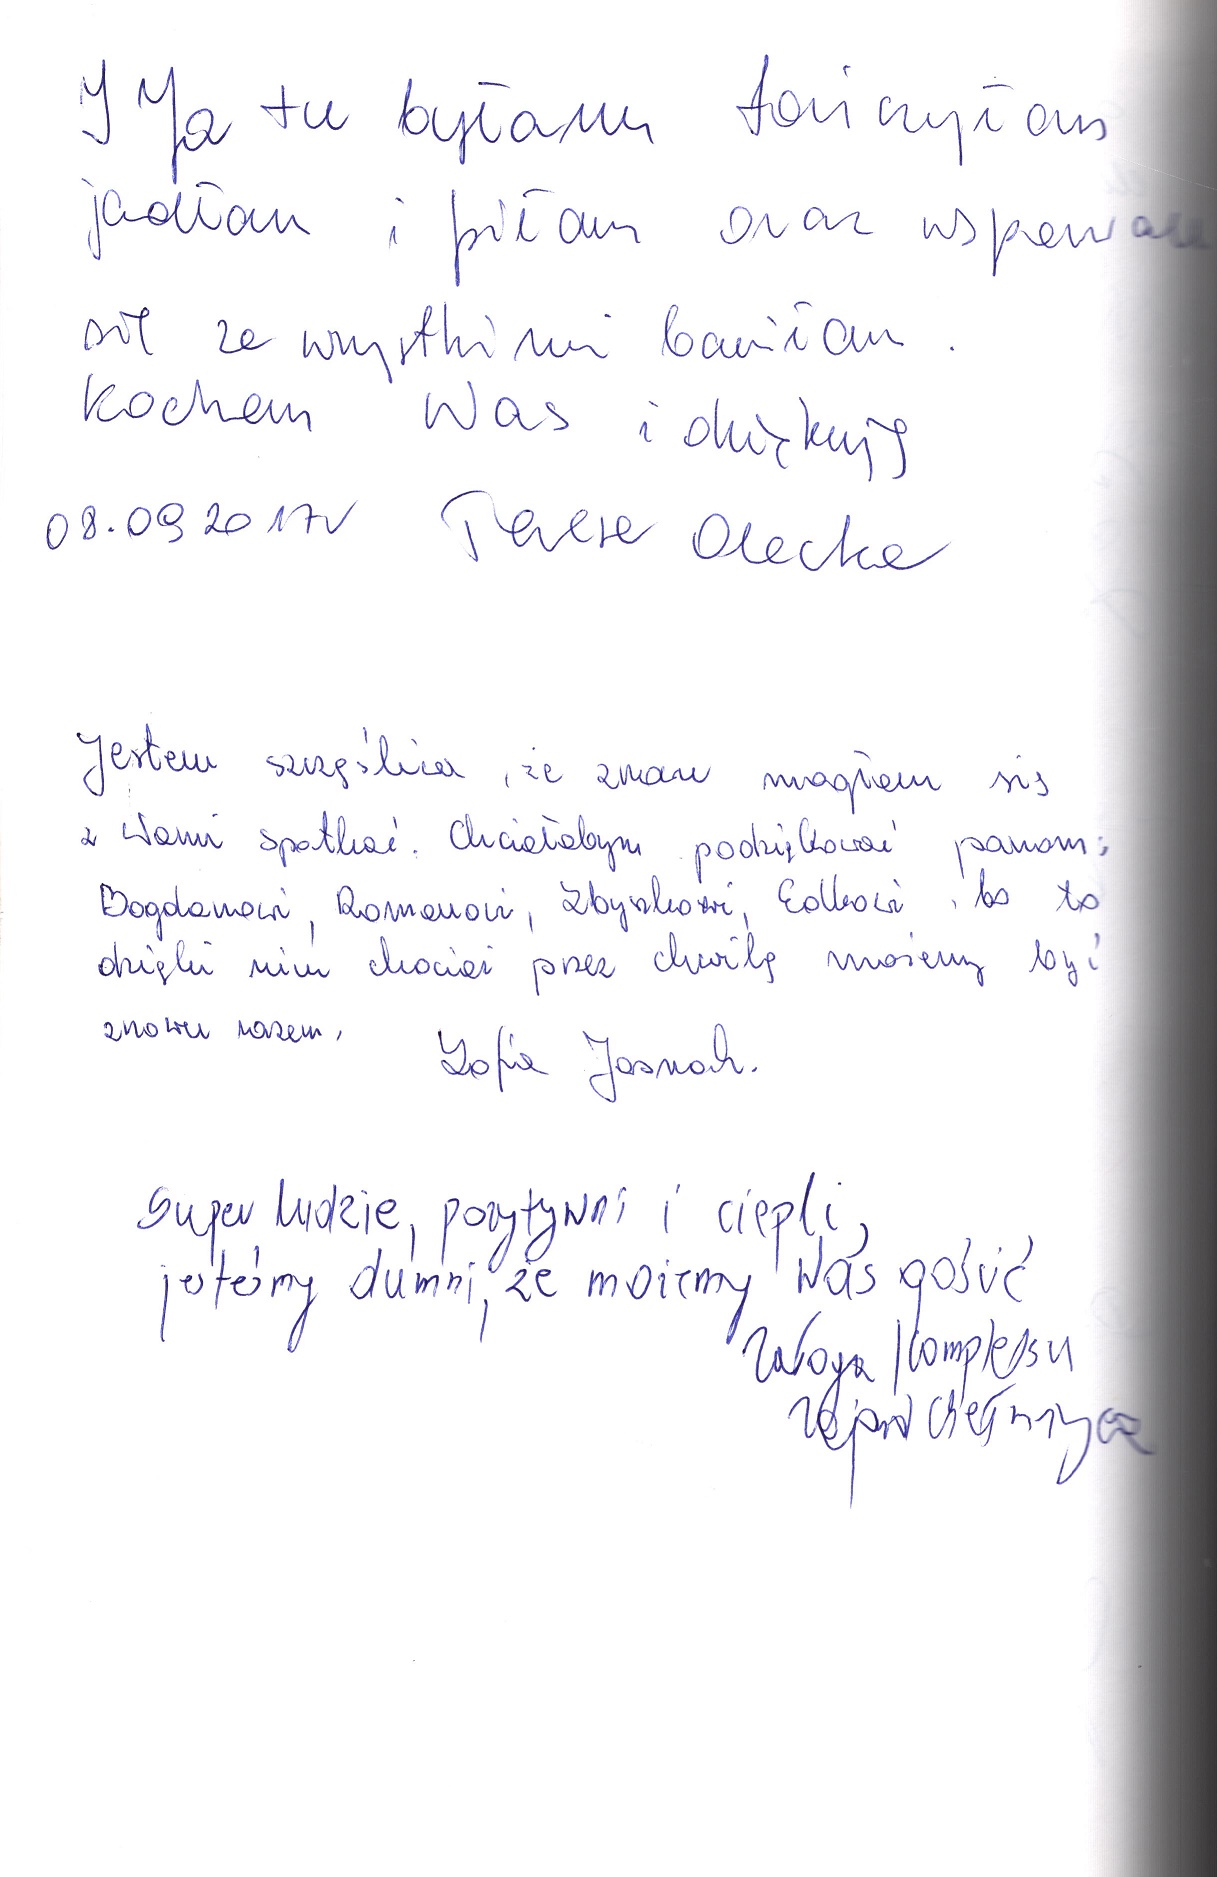 I Ja tu byłam tańczyłam
jadłam i piłam oraz
się ze wszystkimi bawiłam.
Kocham Was i dziękuję
08.09 2017r Teresa Olecka
Jestem szczęśliwa, że znów mogłam się
z Wami spotkać. Chciałabym podziękować panom:
Bogdanowi, Romanowi, Zbyszkowi, Edkowi, bo to
dzięki nim chociaż przez chwilę możemy być
znowu razem. Zofia
Super ludzie, pozytywni i ciepli,
jesteśmy dumni, że możemy Was gościć
Załoga Kompleksu
Zajazd Chełmżyca